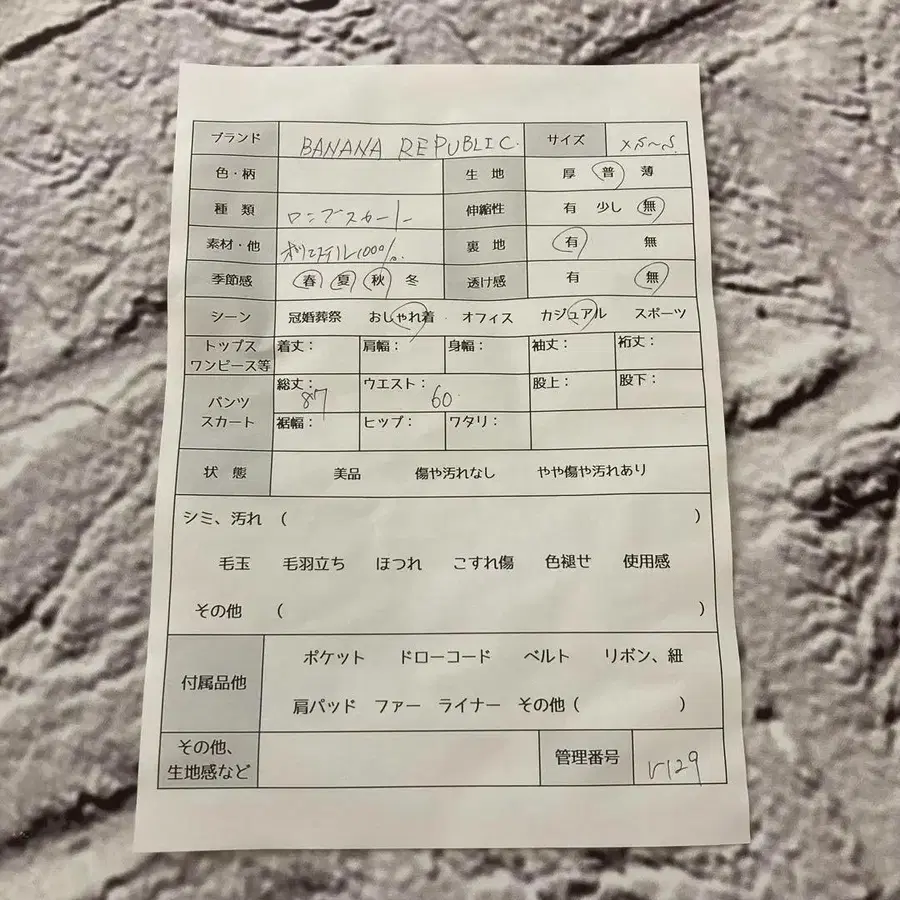 ブランド BANANA REPUBLIC. サイズ XS~S.
色・柄 生地 厚 普 薄
種類 ロングスカート 伸縮性 有 少し 無
素材・他 ポリエステル100%. 裏地 有 無
季節感 春 夏 秋 冬 透け感 有 無
シーン 冠婚葬祭 おしゃれ着 オフィス カジュアル スポーツ
トップス ワンピース等 着丈： 肩幅： 身幅： 袖丈： 裄丈：
パンツ スカート 総丈：87 ウエスト：60 股上： 股下：
裾幅： ヒップ： ワタリ：
状態 美品 傷や汚れなし やや傷や汚れあり
シミ、汚れ ( )
毛玉 毛羽立ち ほつれ こすれ傷 色褪せ 使用感
その他 ( )
付属品他 ポケット ドローコード ベルト リボン、紐
肩パッド ファー ライナー その他 ( )
その他、生地感など 管理番号 V129